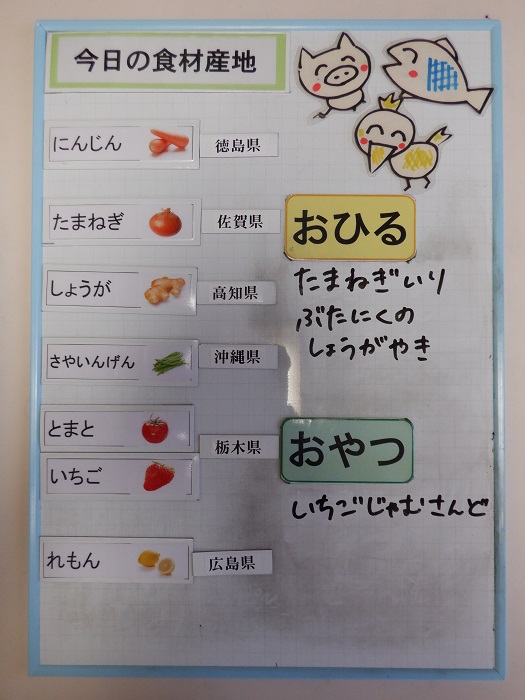 今日の食材産地
にんじん 徳島県
たまねぎ 佐賀県
しょうが 高知県
さやいんげん 沖縄県
とまと
栃木県
いちご
れもん 広島県
おひる
たまねぎいり
ぶたにくの
しょうがやき
おやつ
いちごじゃむさんど